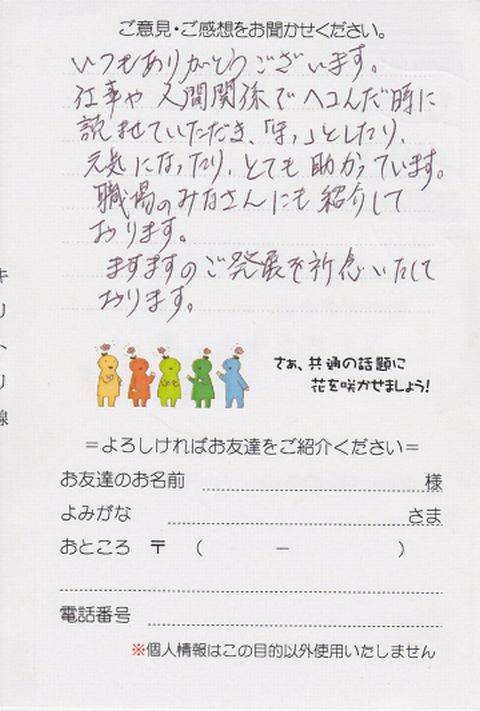 ご意見・ご感想をお聞かせください。
いつもありがとうございます。
仕事や人間関係でヘコんだ時に
読ませていただき、「ほっ」としたり、
元気になったり、とても助かっています。
職場のみなさんにも紹介して
おります。
ますますのご発展を祈念いたして
おります。
キリトリ線
さぁ、共通の話題に
花を咲かせましょう!
=よろしければお友達をご紹介ください=
お友達のお名前 様
よみがな さま
おところ 〒 ( － )
電話番号
※個人情報はこの目的以外使用いたしません